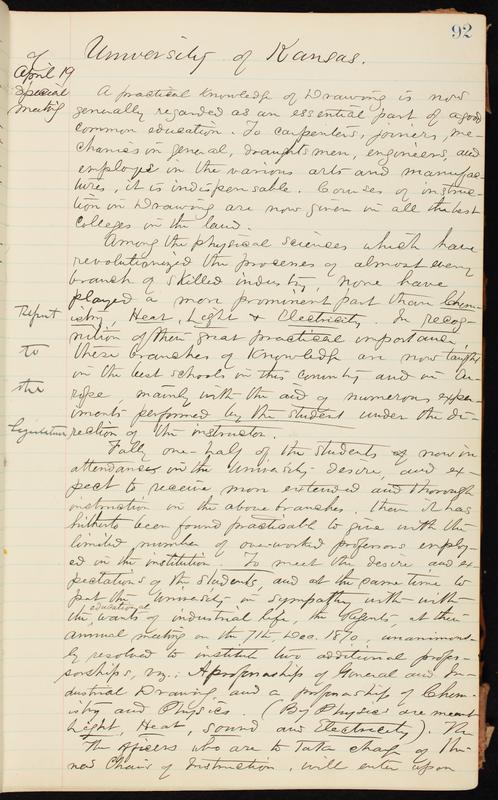 92
University of Kansas.
of
April 19
Special
meeting
A practical knowledge of Drawing is now
generally regarded as an essential part of a good
common education. To carpenters, joiners, me-
chanics in general, draughtsmen, engineers, and
employé in the various arts and manufac-
tures, it is indispensable. Courses of instruc-
tion in Drawing are now given in all the best
colleges in the land.
Among the physical sciences which have
revolutionized the processes of almost every
branch of skilled industry, none have
played a more prominent part than Chem-
istry, Heat, Light & Electricity. In recog-
nition of their great practical importance,
these branches of knowledge are now taught
in the best schools in this country and in Eu-
rope, mainly with the aid of numerous exper-
iments performed by the student under the di-
rection of the instructor.
Report
to
the
Legislature
Fully one-half of the students now in
attendance in the University desire, and ex-
pect to receive more extended and thorough
instruction in the above branches, than it has
hitherto been found practicable to give with the
limited number of over-worked professors employ-
ed in the institution. To meet the desire and ex-
pectations of the students, and at the same time to
put the University in sympathy with with
the educational wants of industrial life, the Regents, at their
annual meeting on the 7th Dec. 1870, unanimous-
ly resolved to institute two additional profes-
sorships, viz.: A professorship of General and In-
dustrial Drawing, and a professorship of Chem-
istry and Physics. (By Physics are meant
Light, Heat, Sound and Electricity). The
The officers who are to take charge of the
new Chairs of Instruction, will enter upon